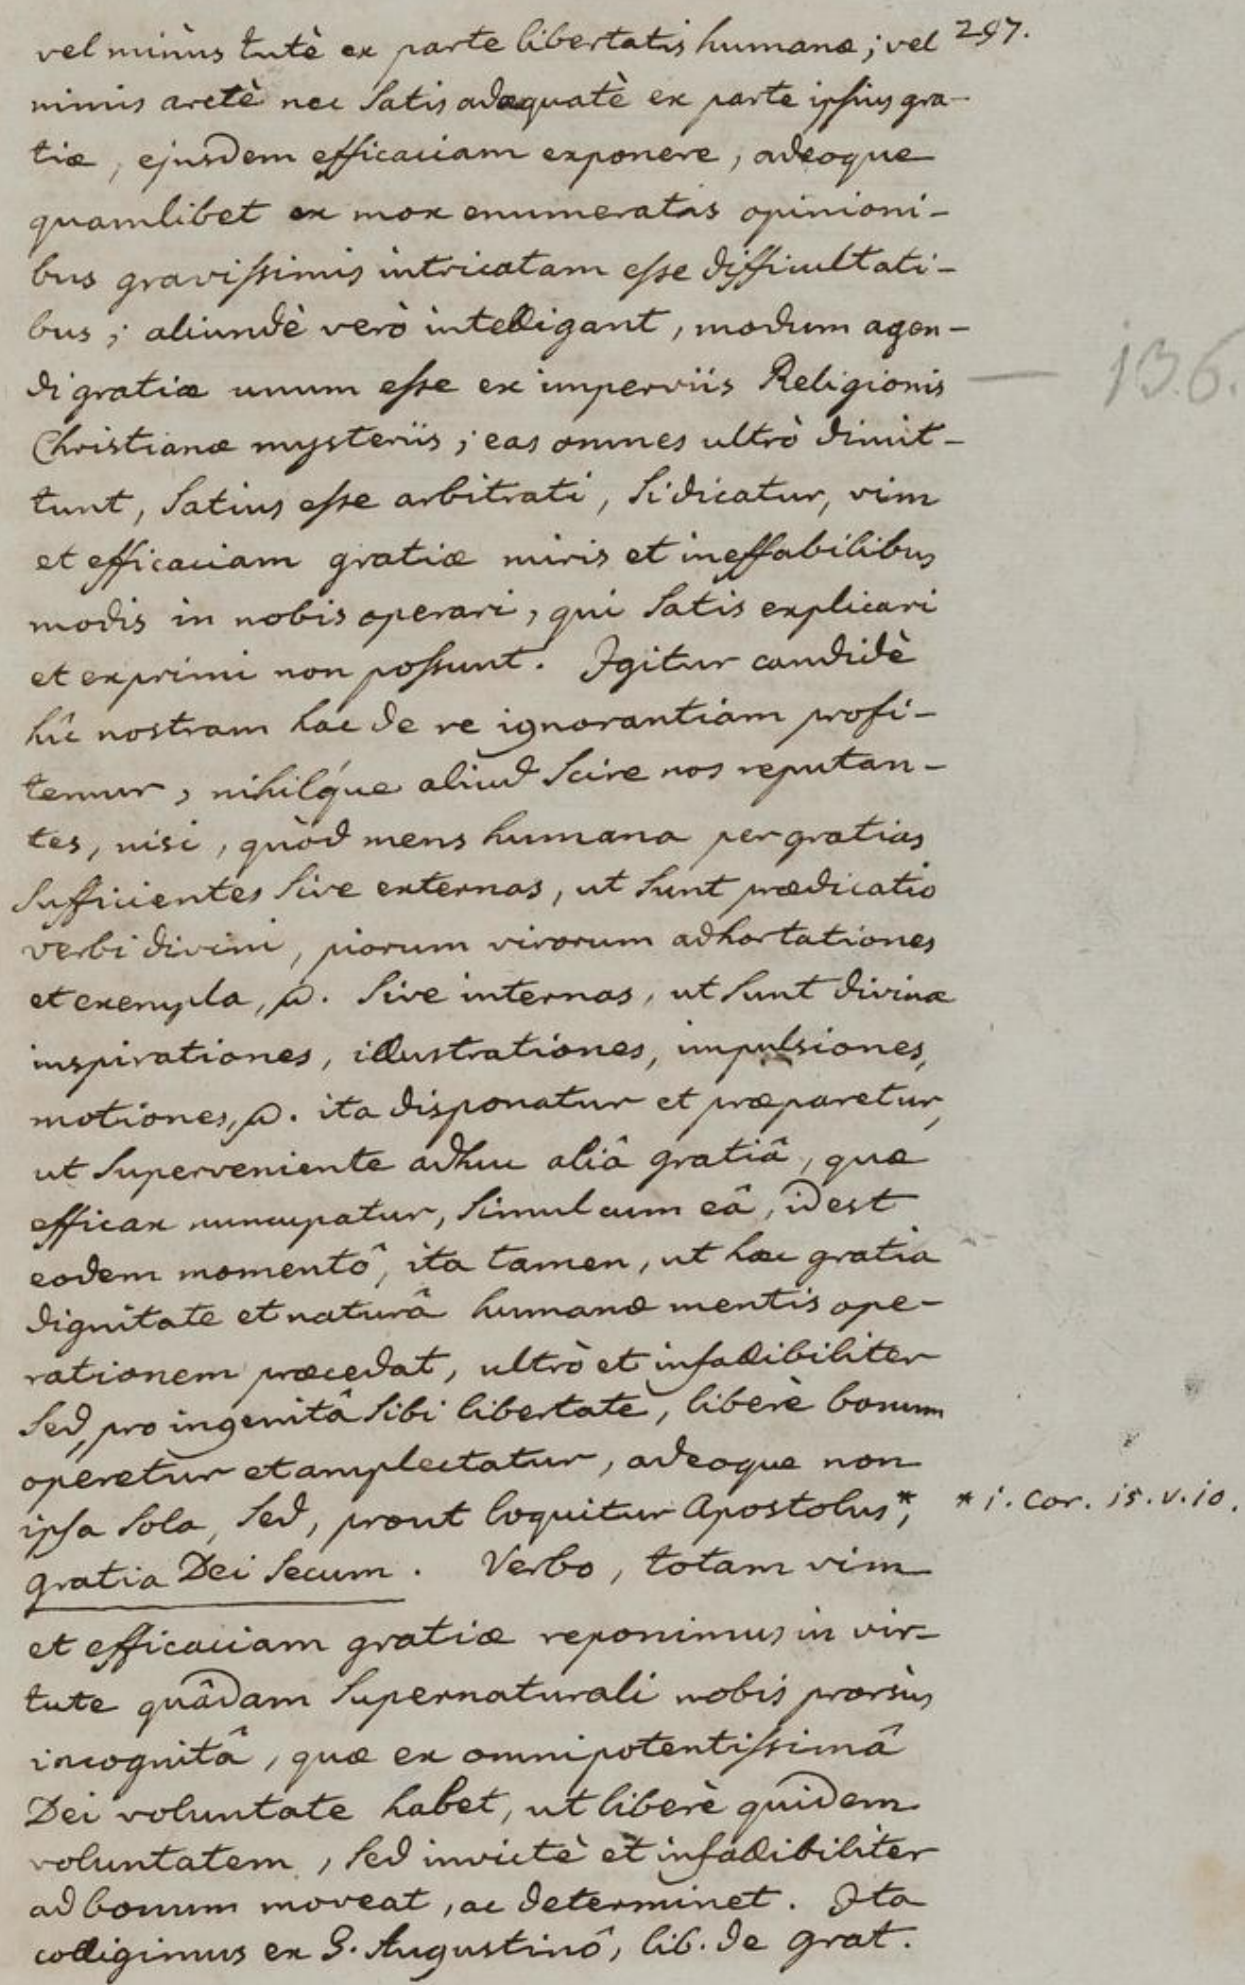 vel minùs tutè ex parte libertatis humanæ; vel 297.
nimis arctè nec satis adæquatè ex parte ipsius gra-
tiæ, ejusdem efficaciam exponere, adeoque
quamlibet ex mox enumeratis opinioni-
bus gravissimis intricatam esse difficultati-
bus; aliundè verò intelligant, modum agen-
di gratiæ unum esse ex imperviis Religionis — 136.
Christianæ mysteriis; eas omnes ultrò dimit-
tunt, satius esse arbitrati, si dicatur, vim
et efficaciam gratiæ miris et ineffabilibus
modis in nobis operari, qui satis explicari
et exprimi non possunt. Igitur candidè
hîc nostram hac de re ignorantiam profi-
temur, nihilque aliud scire nos reputan-
tes, nisi, quòd mens humana per gratias
sufficientes sive externas, ut sunt prædicatio
verbi divini, piorum virorum adhortationes
et exempla, sive internas, ut sunt divinæ
inspirationes, illustrationes, impulsiones,
motiones, ita disponatur et præparetur,
ut superveniente adhuc aliâ gratiâ, quæ
efficax nuncupatur, simul cum eâ, id est
eodem momentô, ita tamen, ut hæc gratia
dignitate et naturâ humanæ mentis ope-
rationem præcedat, ultrò et infallibiliter
sed, pro ingenitâ sibi libertate, liberè bonum
operetur et amplectatur, adeoque non
ipsa sola, sed, prout loquitur Apostolus*, * i. Cor. 15. v. 10.
gratia Dei secum. Verbo, totam vim
et efficaciam gratiæ reponimus in vir-
tute quâdam supernaturali nobis prorsùs
incognitâ, quæ ex omnipotentissimâ
Dei voluntate habet, ut liberè quidem
voluntatem, sed invictè et infallibiliter
ad bonum moveat, ac determinet. Ita
colligimus ex S. Augustinô, lib. de grat.